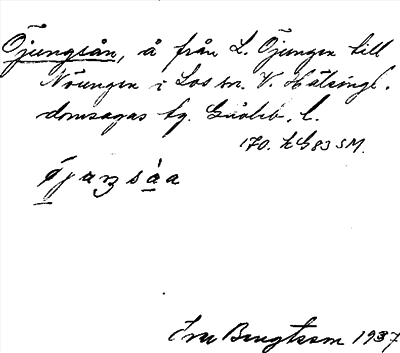 Öjungsån, å från L. Öjungen till
Nöungen i Los sn. V. Hälsingl.
domsagas tg. Gävleb. l.
170. h G83 SM.
öjaŋsa̱a
Iva Bengtsson 1937